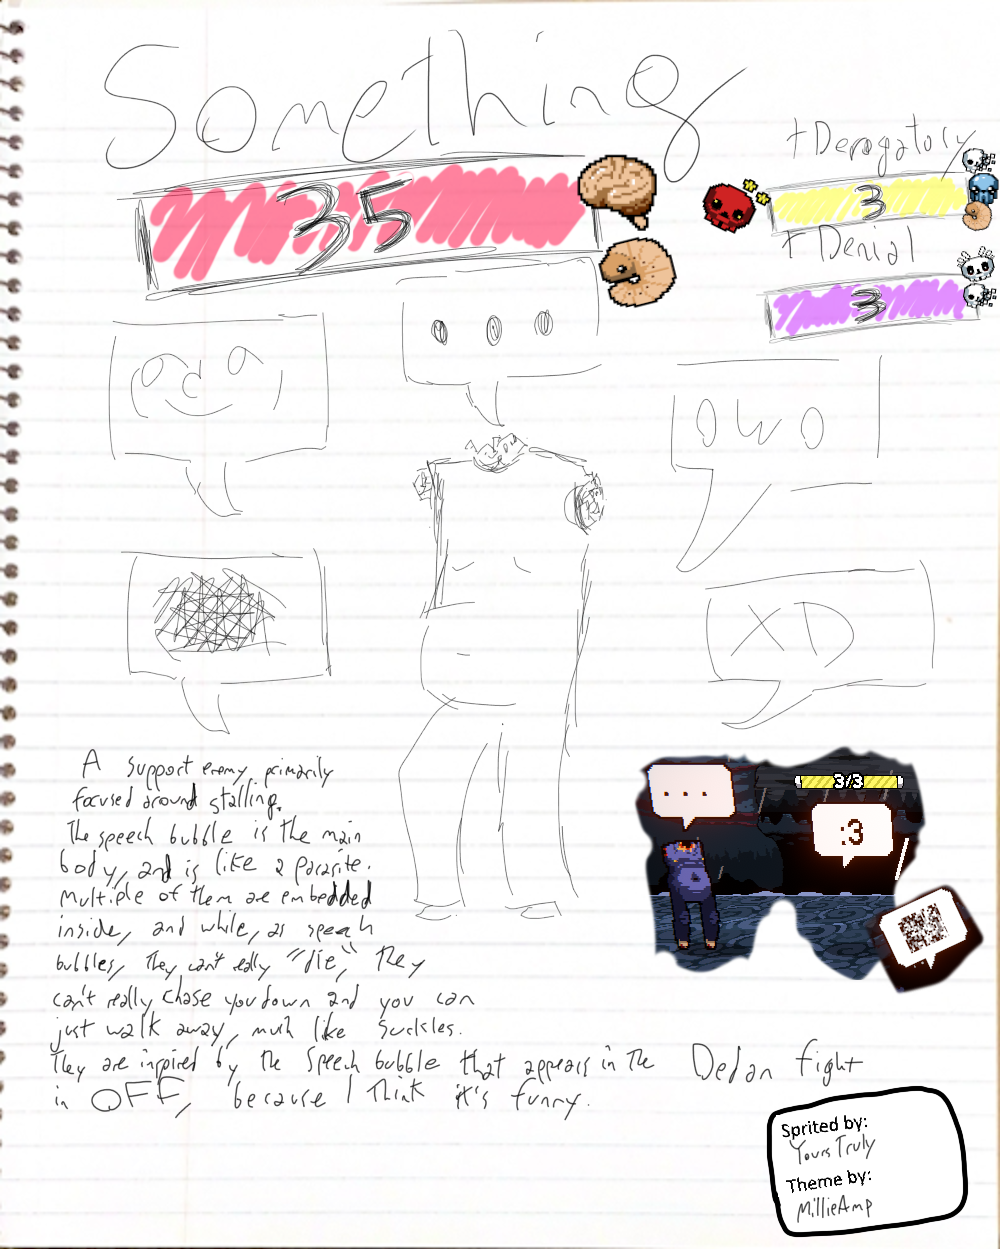 Something
+Derogatory
35
3
+Denial
3
OwO
XD
A support enemy, primarily
focused around stalling.
The speech bubble is the main
body, and is like a parasite.
Multiple of them are embedded
inside, and while, as speech
bubbles, they can't really "die", they
can't really chase you down and you can
just walk away, much like Suckles.
They are inspired by the speech bubble that appears in the Dedan fight
in OFF, because I think it's funny.
...
3/3
:3
Sprited by:
Yours Truly
Theme by:
MillieAmp